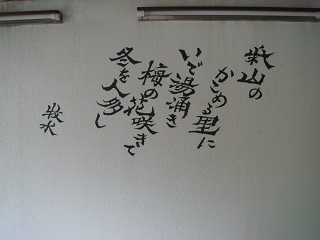 柴山の
かこめる里に
いで湯涌き
梅の花咲きて
冬を人多し
牧水